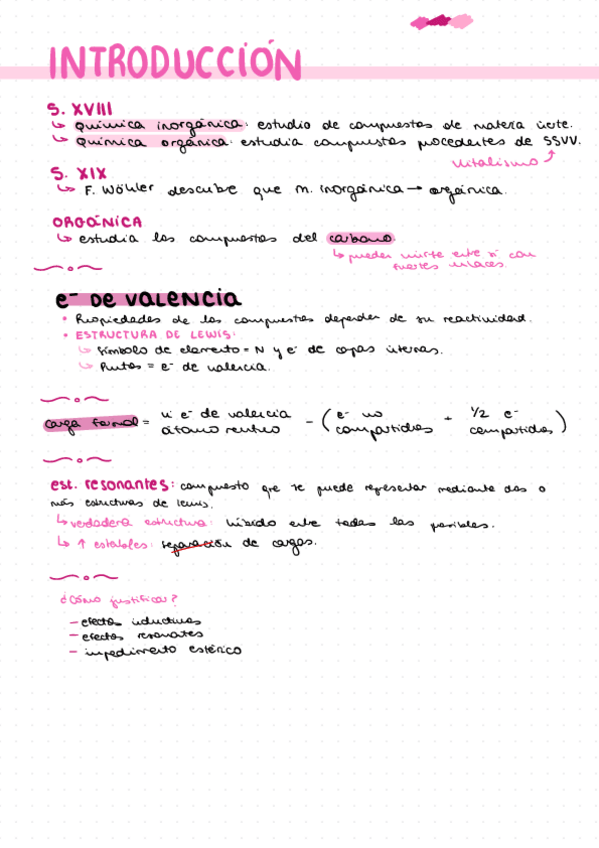 INTRODUCCIÓN
S. XVIII
↳ Química inorgánica: estudio de compuestos de materia inerte.
↳ Química orgánica: estudia compuestos procedentes de SSVV.
Vitalismo
S. XIX
↳ F. Wöhler descubre que m. inorgánica → orgánica.
ORGÁNICA
↳ estudia los compuestos del carbono.
↳ pueden unirse entre sí con
fuertes enlaces.
e⁻ DE VALENCIA
• Propiedades de los compuestos dependen de su reactividad.
• ESTRUCTURA DE LEWIS:
↳ Símbolo de elemento = N y e⁻ de capas internas.
↳ Puntos = e⁻ de valencia.
carga formal = nº e⁻ de valencia átomo neutro - (e⁻ no compartidos + 1/2 e⁻ compartidos)
est. resonantes: compuesto que se puede representar mediante dos o
más estructuras de lewis.
↳ verdadera estructura: híbrido entre todas las posibles.
↳ ↑ estables: separación de cargas.
¿Cómo justificar?
- efectos inductivos
- efectos resonantes
- impedimento estérico